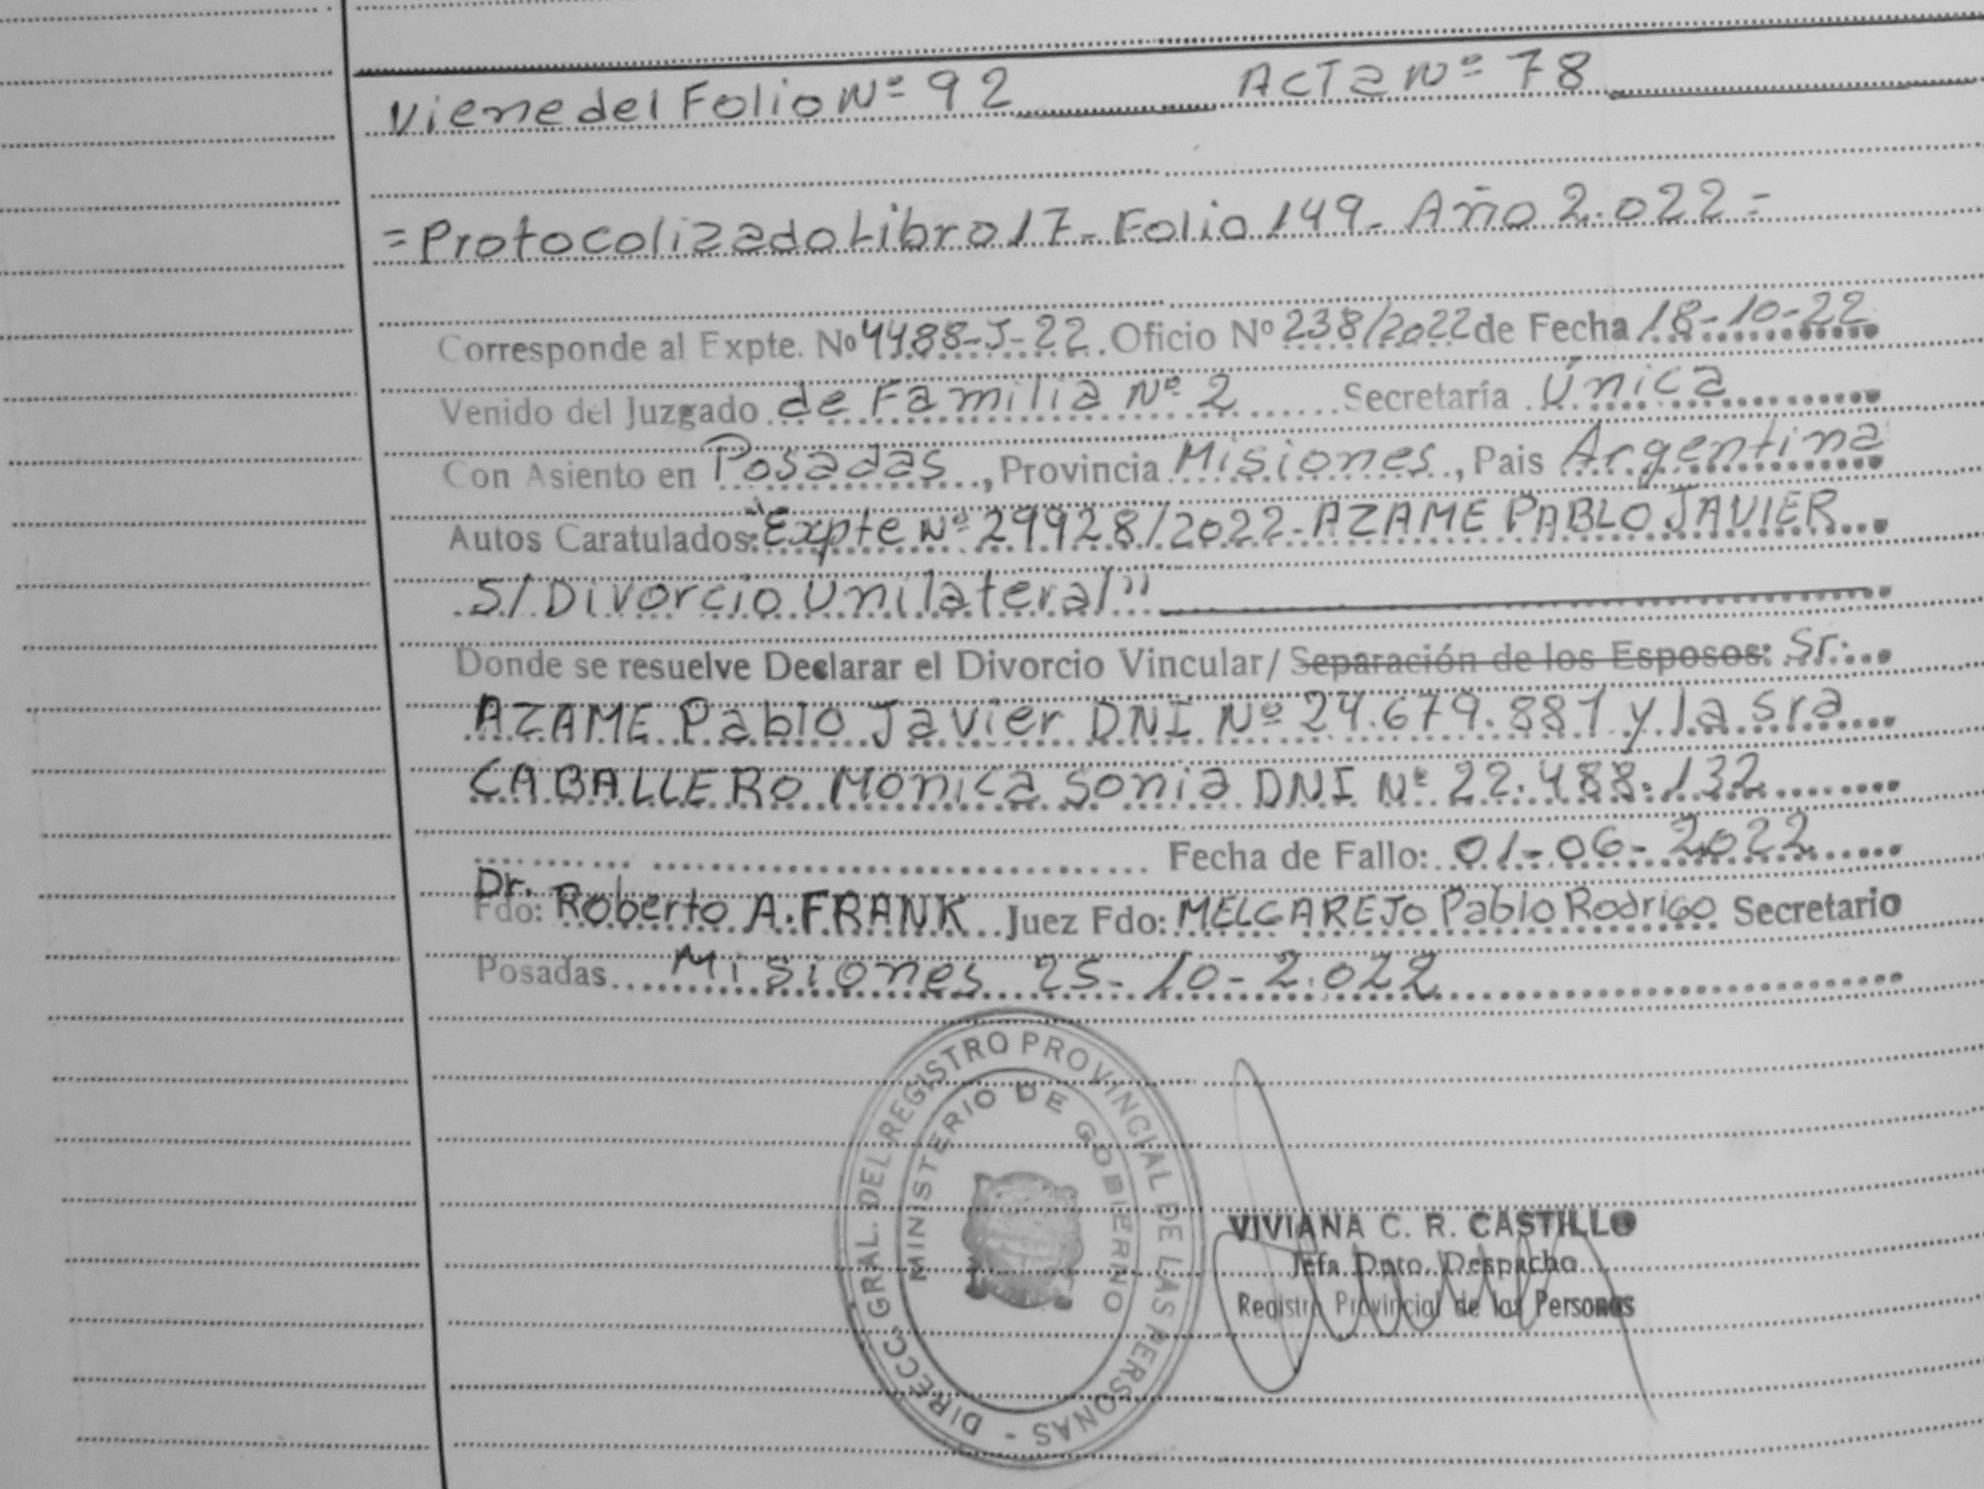 Viene del Folio Nº 92 Acta Nº 78
= Protocolizado Libro 17 - Folio 149 - Año 2.022 =
Corresponde al Expte. Nº 4488-J-22. Oficio Nº 238/2022 de Fecha 18-10-22
Venido del Juzgado de Familia Nº 2 Secretaría Única
Con Asiento en Posadas, Provincia Misiones, Pais Argentina
Autos Caratulados: "Expte Nº 29928/2022 - AZAME PABLO JAVIER
S/ Divorcio Unilateral"
Donde se resuelve Declarar el Divorcio Vincular/ Separación de los Esposos: Sr.
AZAME Pablo Javier DNI Nº 24.679.881 y la sra
CABALLERO Monica Sonia DNI Nº 22.488.132
Fecha de Fallo: 01-06-2022
Fdo: Dr. Roberto A. FRANK Juez Fdo: MELGAREJO Pablo Rodrigo Secretario
Posadas Misiones 25-10-2.022
DIRECC. GRAL. DEL REGISTRO PROVINCIAL DE LAS PERSONAS -
MINISTERIO DE GOBIERNO
VIVIANA C. R. CASTILLO
Jefa Dpto. Despacho
Registro Provincial de las Personas